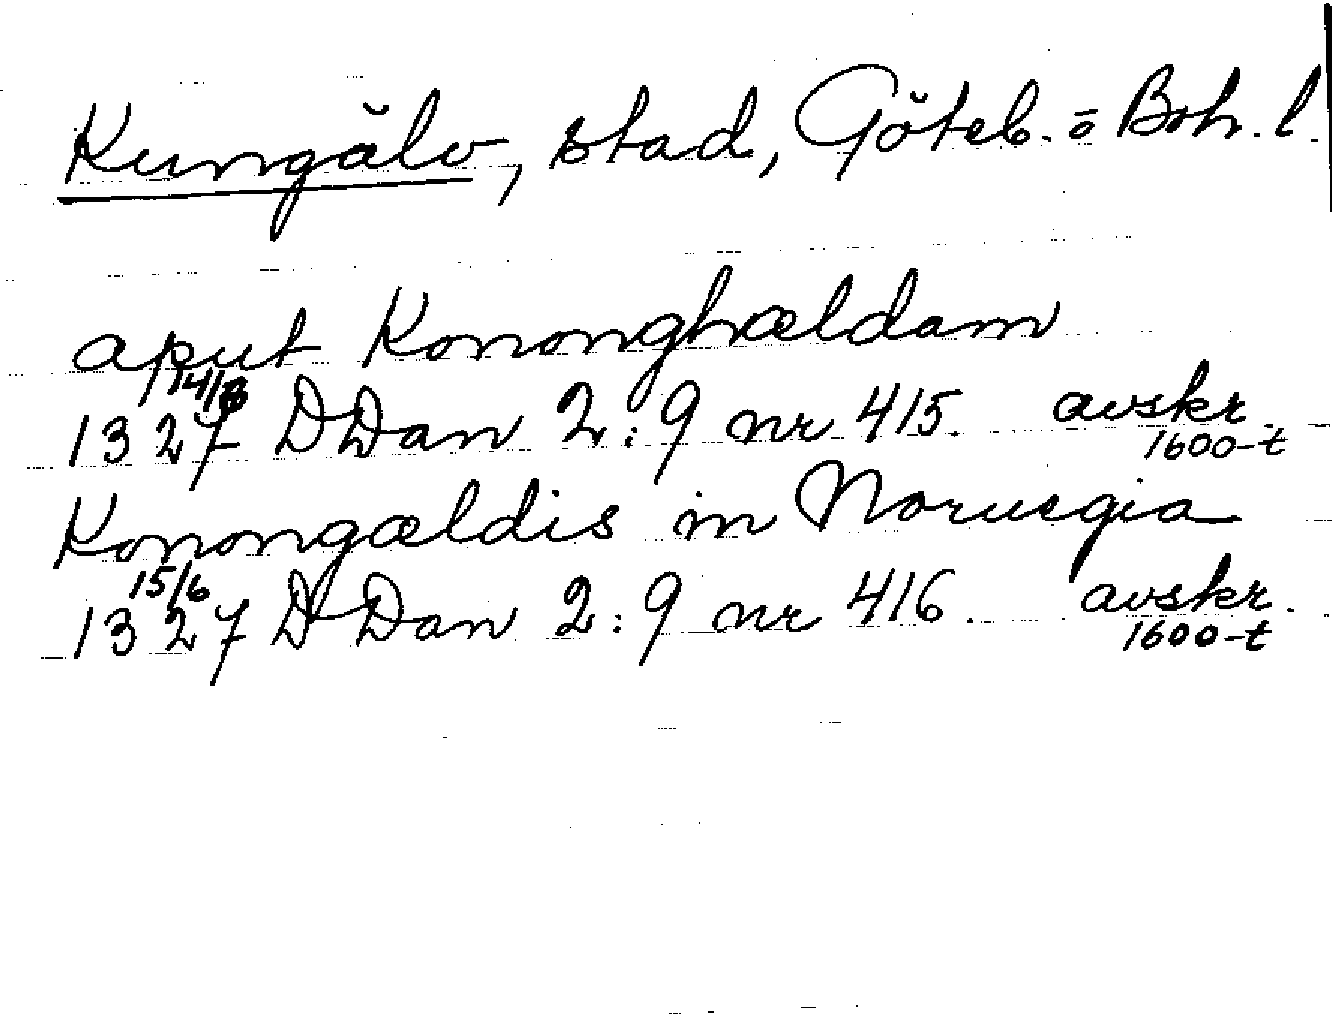 Kungälv, stad, Göteb. o Boh. l.
aput Kononghældam
14/6
1327 DDan 2:9 nr 415. avskr.
1600-t
Konongældis in Noruegia
15/6
1327 DDan 2:9 nr 416. avskr.
1600-t